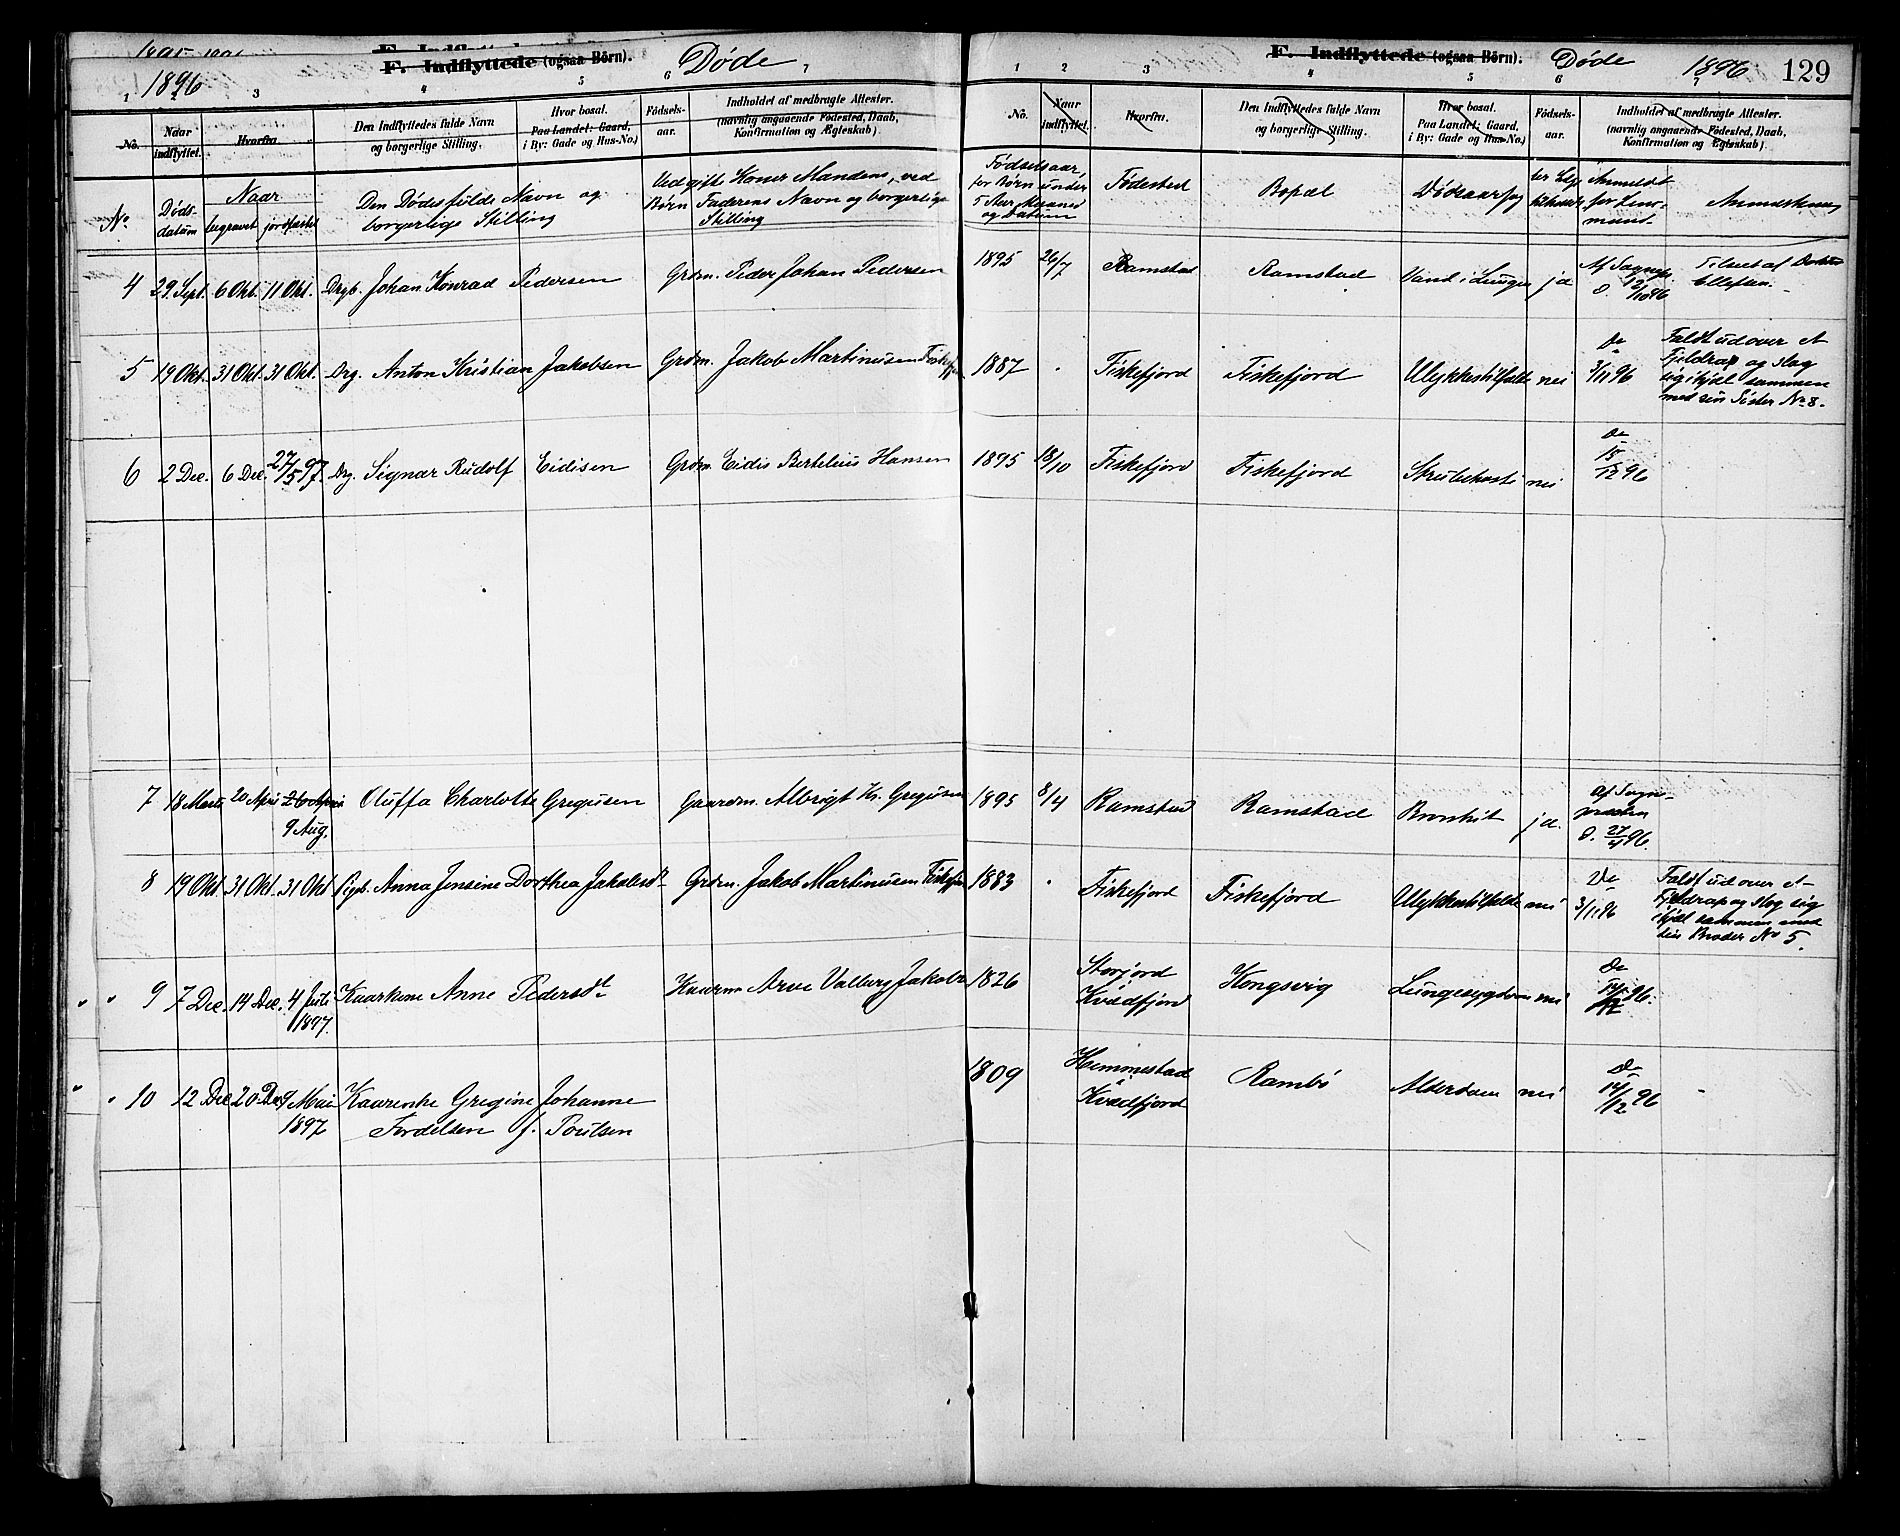 1896
F. Indflyttede (ogsaa Börn).
Døde
1 2 3 4 5 6 7
No.
Naar indflyttet.
Hvorfra.
Den Indflyttedes fulde Navn og borgerlige Stilling.
Hvor bosat. Paa Landet: Gaard, i By: Gade og Hus-No.)
Födsels-aar.
Indholdet af medbragte Attester. (navnlig angaaende Födested, Daab, Konfirmation og Ægteskab).
No
Døds-datum
Naar
begravet jordfæstet
Den Dødes fulde Navn og borgerlige Stilling
Ved gifte Koner Mandens, ved Børn Faderens Navn og borgerlige Stilling
4 29 Sept. 6 Okt. 11 Okt. Drgb. Johan Konrad Pedersen Grdm. Peder Johan Pedersen
5 19 Okt. 31 Okt. 31 Okt. Drg. Anton Kristian Jakobsen Grdm. Jakob Martinusen Fiskefj
6 2 Dec. 6 Dec. 27/5 97. Drg. Signar Rudolf Eidisen Grdm. Eidis Bertelius Hansen
7 18 Marts 20 April 26 April Oluffa Charlotte Gregusen Gaardm. Albrigt Hs. Gregusen
9 Aug.
8 19 Okt. 31 Okt. 31 Okt Pigb. Anna Jensine Dorthea Jakobsdt Grdm. Jakob Martinusen Fiskefj
" " 9 7 Dec. 14 Dec. 4 Juli Kaarkone Anne Pedersdt Kaarm Arve Valberg Jakobs
1897.
" " 10 12 Dec 20 Dec 9 Mai Kaarenke Gregine Johanne
1897 Tordelsen f. Poulsen
F. Indflyttede (ogsaa Börn). Døde 1896 129
1 2 3 4 5 6 7
No.
Naar indflyttet.
Hvorfra.
Den Indflyttedes fulde Navn og borgerlige Stilling.
Hvor bosat. Paa Landet: Gaard, i By: Gade og Hus-No.)
Födsels-aar.
Indholdet af medbragte Attester. (navnlig angaaende Födested, Daab, Konfirmation og Ægteskab).
Fødselsaar, for Børn under 5 Aar Maaned og Datum
Fødested
Bopæl
Dødsaarsag
Anmeldt for Lens-mand
Anmærkning
1895 26/7 Ramstad Ramstad Vand i Lunger ja Af Sognepr. d. 12/10 96 Tilset af Doktor Ellefsen.
1887 Fiskefjord Fiskefjord Ulykkestilfælde nei Do 3/11 96 Faldt udover et Fjeldrap og slog sig ihjel sammen med sin Søster No 8.
1895 18/10 Fiskefjord Fiskefjord Strubehoste nei Do 15/12 96
1895 8/4 Ramstad Ramstad Bronkit ja. Af Sogne-præsten d. 27/4 96.
1883 Fiskefjord Fiskefjord Ulykkestilfælde nei Do 3/11 96 Faldt udover et Fjeldrap og slog sig ihjel sammen med sin Broder No 5.
1826 Storjord Kvædfjord Kongsvig Lungesygdom nei Do 14/12 96.
1809 Hemmestad Kvædfjord Rambø Alderdom nei Do 14/12 96